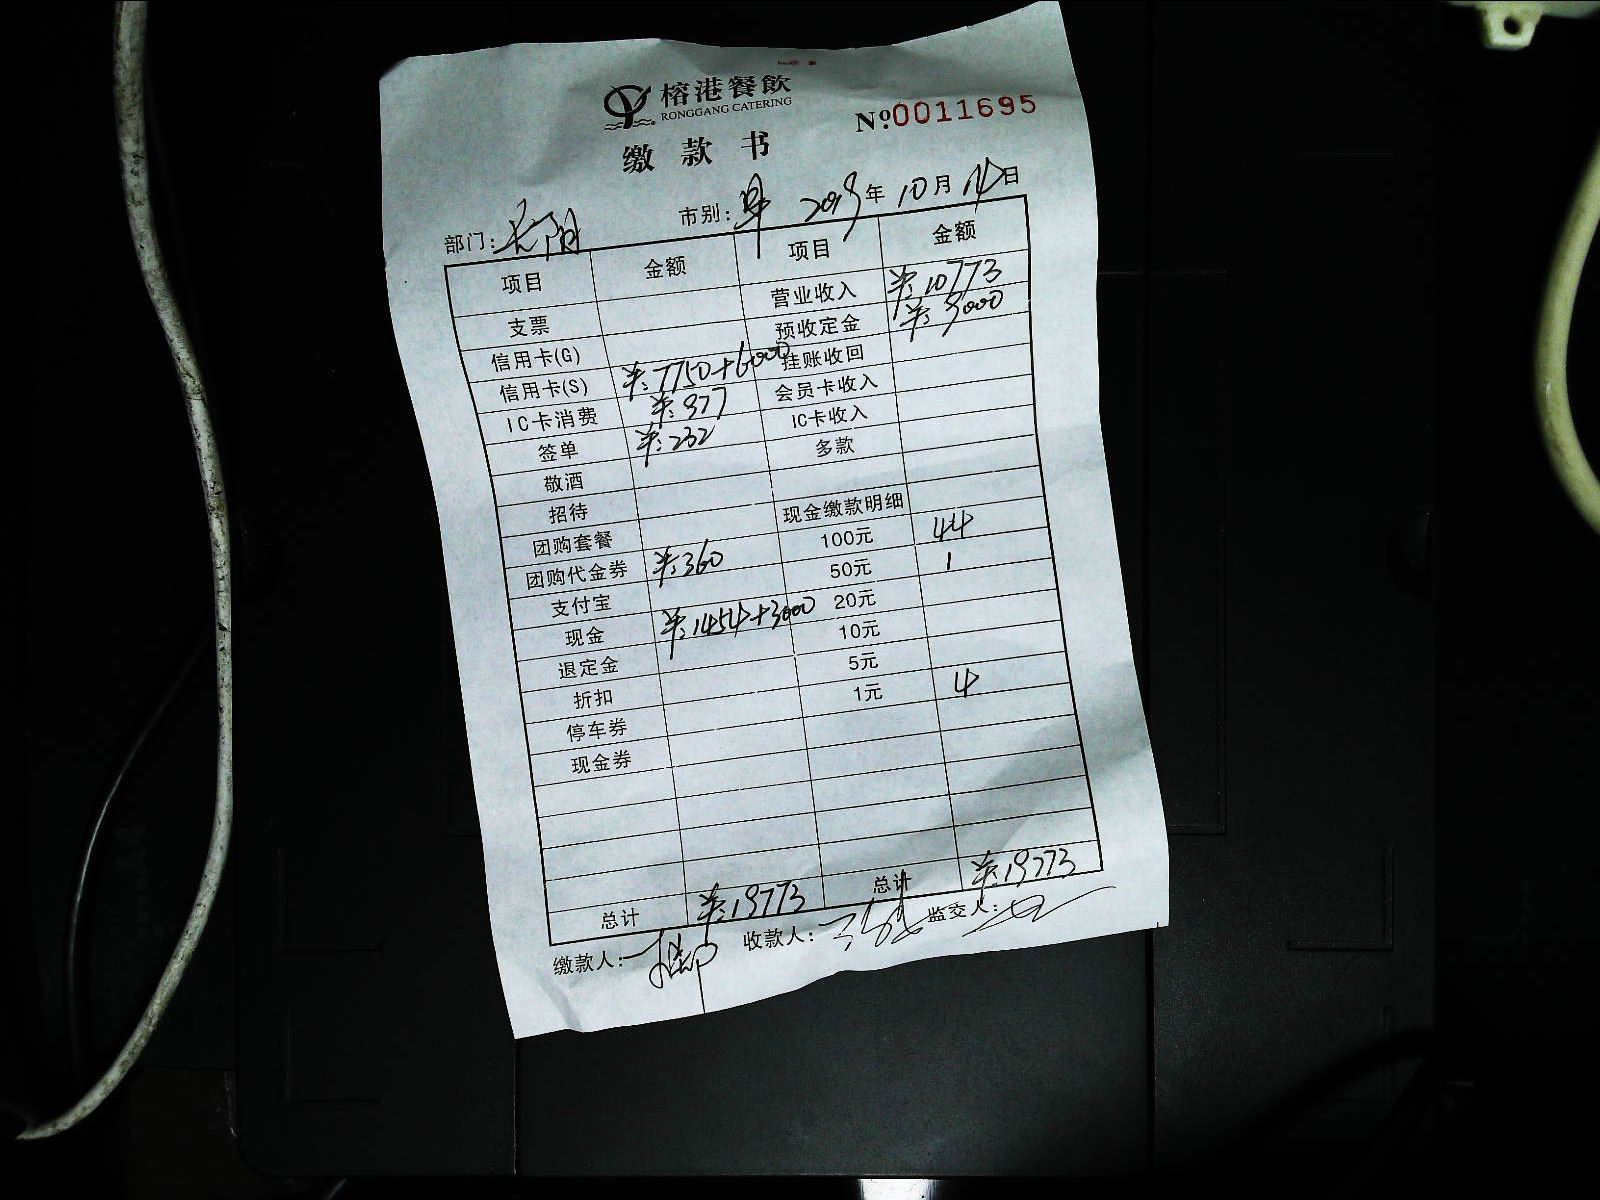 榕港餐飲
RONGGANG CATERING
缴款书
Nº:0011695
部门:长阳 市别:早 2019年10月14日
项目 金额 项目 金额
支票 营业收入 ¥:10773
信用卡(G) 预收定金 ¥:9000
信用卡(S) ¥:7750+6000 挂账收回
IC卡消费 ¥:977 会员卡收入
签单 ¥:232 IC卡收入
敬酒 多款
招待
团购套餐 现金缴款明细
团购代金券 ¥:360 100元 44
支付宝 50元 1
现金 ¥:1454+3000 20元
退定金 10元
折扣 5元
停车券 1元 4
现金券
总计 ¥:19773 总计 ¥:19773
缴款人: 收款人: 监交人: